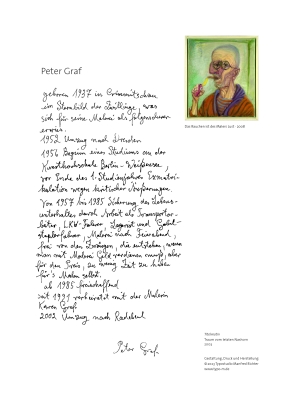 Peter Graf
geboren 1937 in Crimmitschau
ein Sternbild der Zwillinge, was
sich für seine Malerei als folgenschwer
erwies.
1952 Umzug nach Dresden
1956 Beginn eines Studiums an der
Kunsthochschule Berlin-Weißensee,
vor Ende des 1. Studienjahres Exmatri-
kulation wegen kritischer Äußerungen.
Von 1957 bis 1985 Sicherung des Lebens-
unterhaltes durch Arbeit als Transportar-
beiter, LKW-Fahrer, Lagerist und Gabel-
staplerfahrer. Malerei nach Feierabend,
frei von den Zwängen, die entstehen, wenn
man mit Malerei Geld verdienen muß, aber
für den Preis, zu wenig Zeit zu haben
für's Malen selbst.
ab 1985 freischaffend
seit 1991 verheiratet mit der Malerin
Karen Graf
2002 Umzug nach Radebeul
Peter Graf
Titelseite:
2013
Gestaltung, Druck und Herstellung